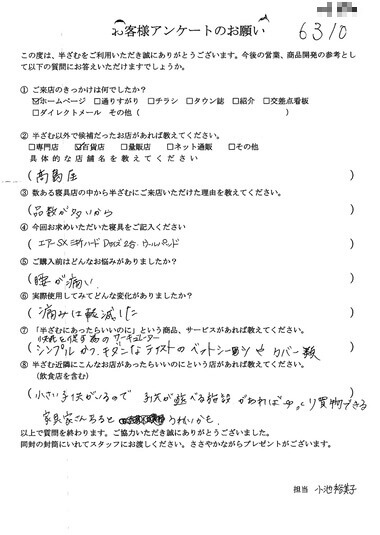 お客様アンケートのお願い
6310
この度は、半ざむをご利用いただき誠にありがとうございます。今後の営業、商品開発の参考として
以下の質問にお答えいただけますでしょうか。
① ご来店のきっかけは何でしたか？
☑ホームページ □通りすがり □チラシ □タウン誌 □紹介 □交差点看板
□ダイレクトメール その他（ ）
② 半ざむ以外で候補だったお店があれば教えてください。
□専門店 ☑百貨店 □量販店 □ネット通販 □その他
具体的な店舗名を教えてください
（高島屋 ）
③ 数ある寝具店の中から半ざむにご来店いただけた理由を教えてください。
（品数が多いから ）
④ 今回お求めいただいた寝具をご記入ください
（エアーSX ハード ）
⑤ ご購入前はどんなお悩みがありましたか？
（腰が痛い ）
⑥ 実際使用してみてどんな変化がありましたか？
（痛みは軽減した ）
⑦ 「半ざむにあったらいいのに」という商品、サービスがあれば教えてください。
快眠を促す為のサーキュレーター
（シンプルかつ、モダンなテイストのベットシーツやカバー類 ）
⑧ 半ざむ近隣にこんなお店があったらいいのにという店があれば教えてください。
（飲食店を含む）
（小さい子供がいるので 子供が遊べる施設があればゆっくり買物できる
うれいかも。
以上で質問を終わります。ご協力いただき誠にありがとうございました。
同封の封筒にいれてスタッフにお渡しください。ささやかながらプレゼントがございます。
担当 小池